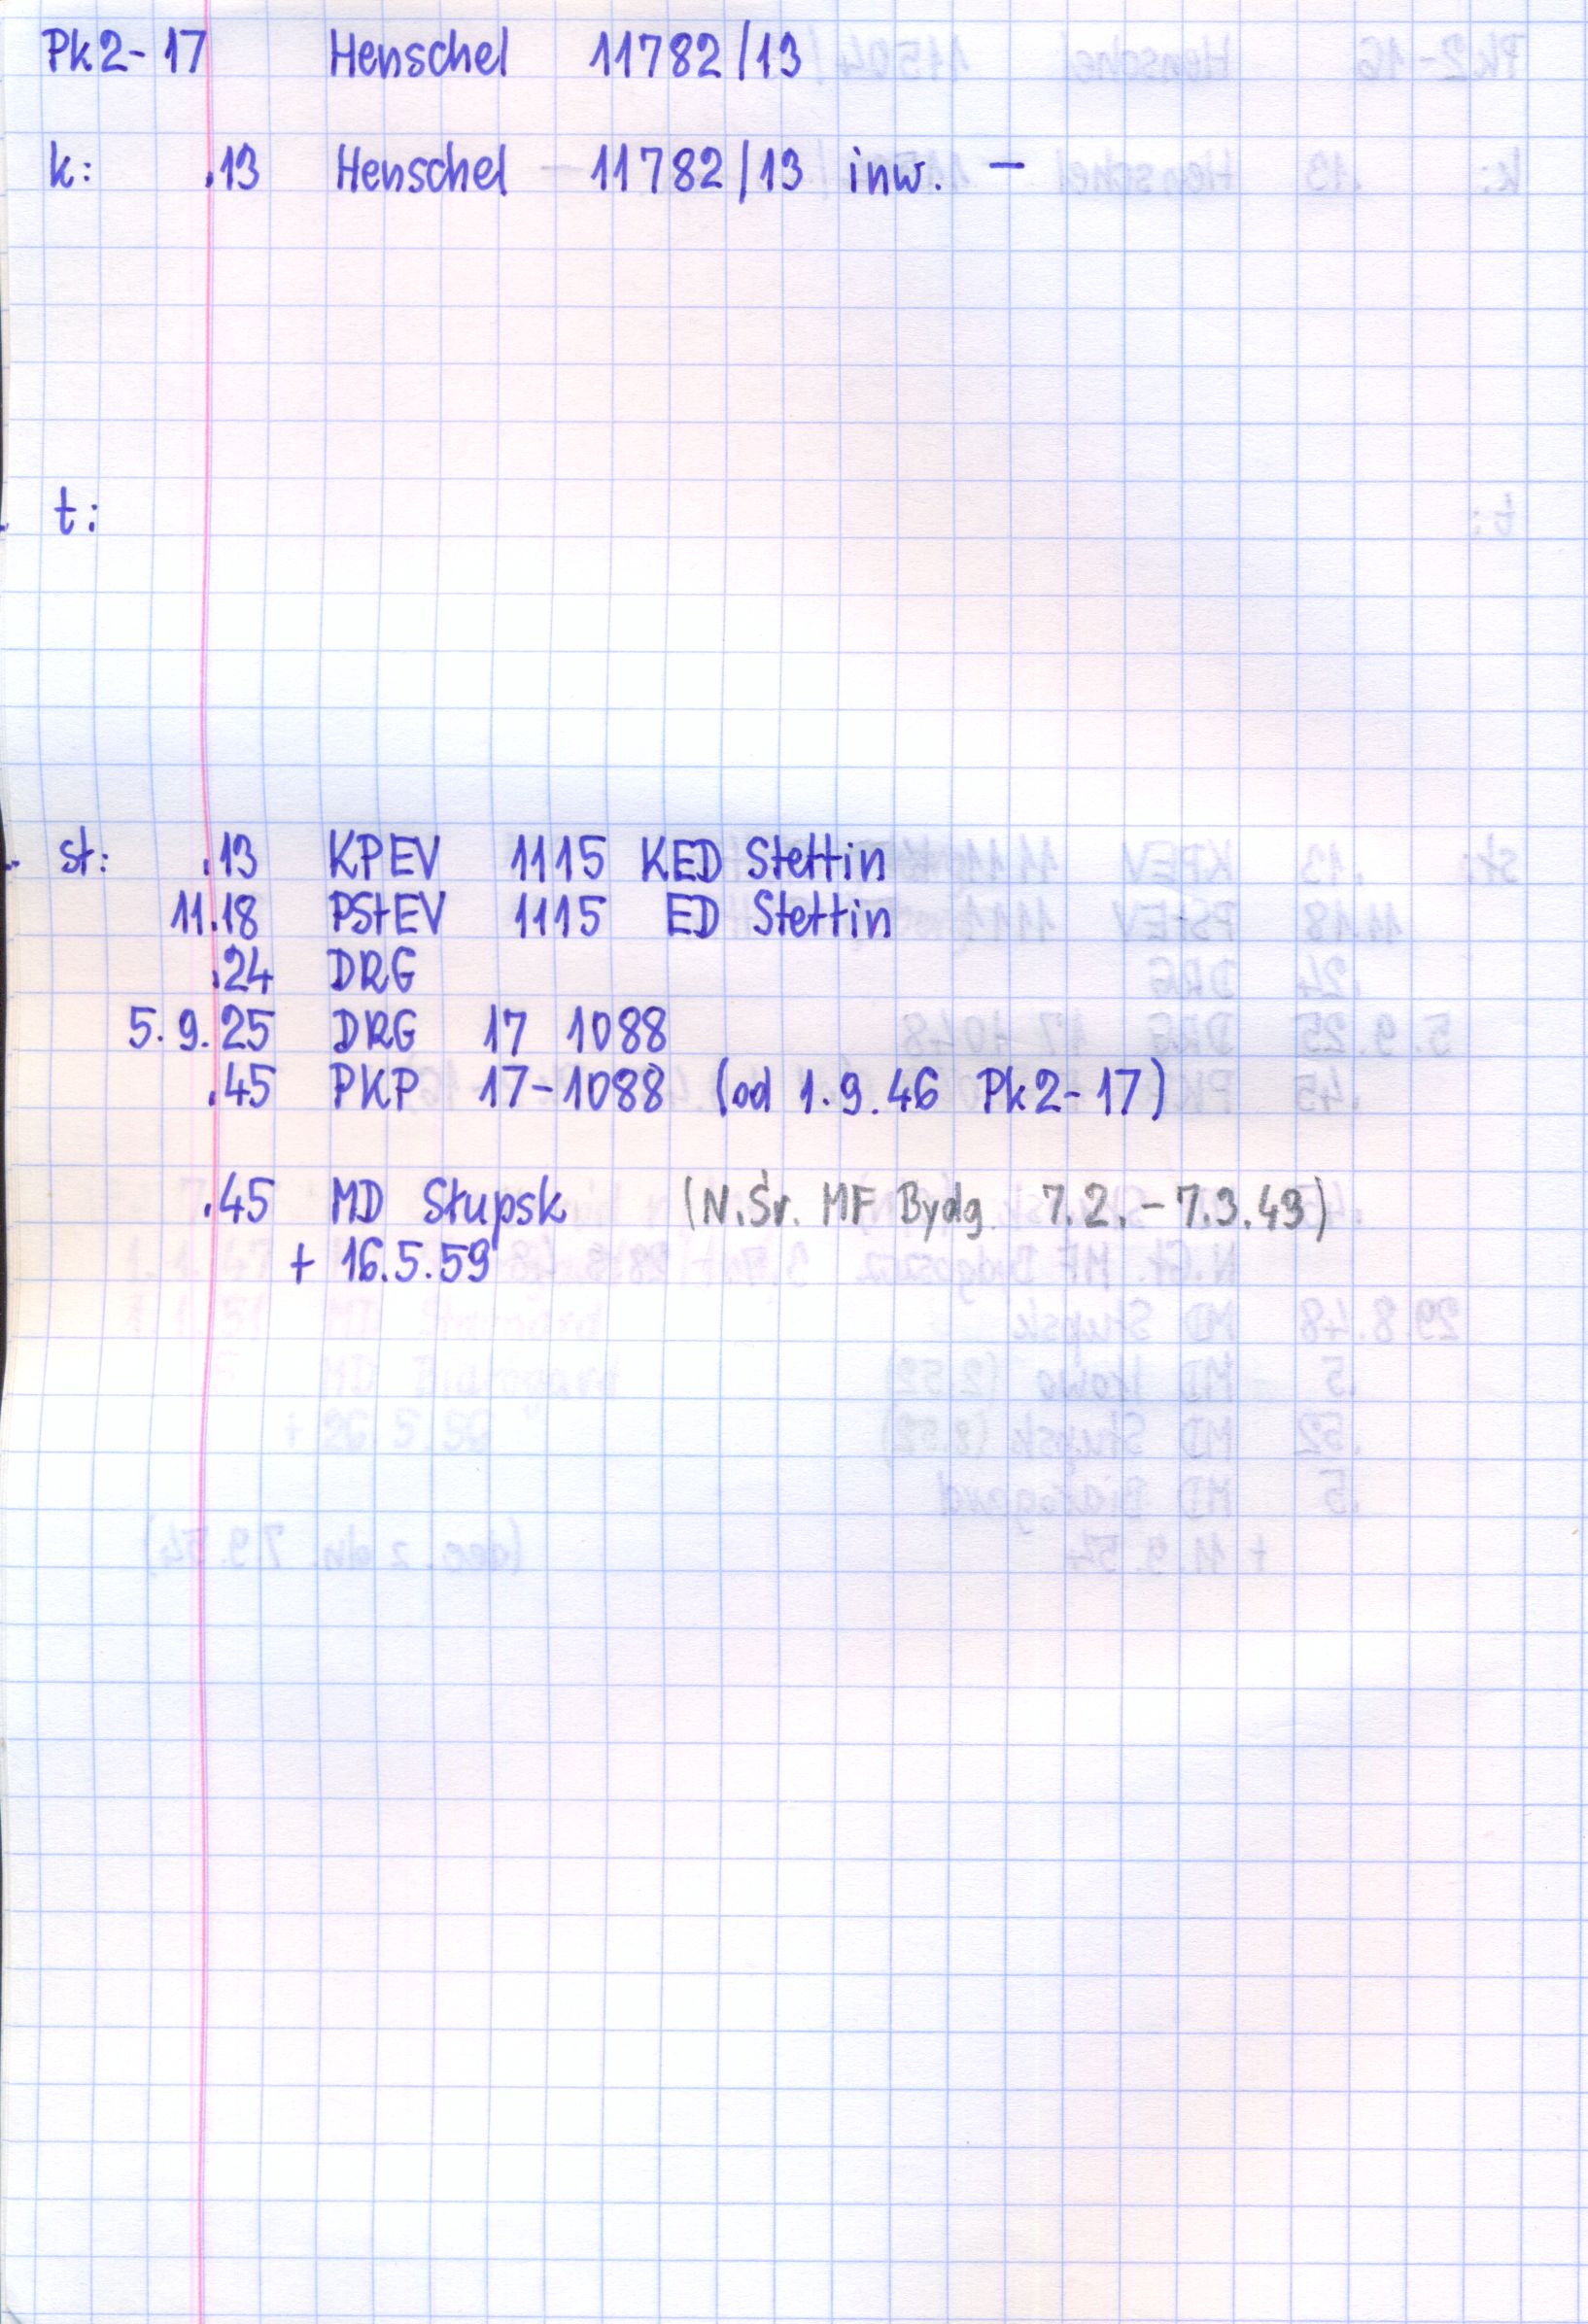 Pk2-17 Henschel 11782/13
k: .13 Henschel - 11782/13 inw. -
t:
st: .13 KPEV 1115 KED Stettin
11.18 PStEV 1115 ED Stettin
.24 DRG
5.9.25 DRG 17 1088
.45 PKP 17-1088 (od 1.9.46 Pk2-17)
.45 MD Słupsk (N.Śr. MF Bydg. 7.2.-7.3.49)
+ 16.5.59